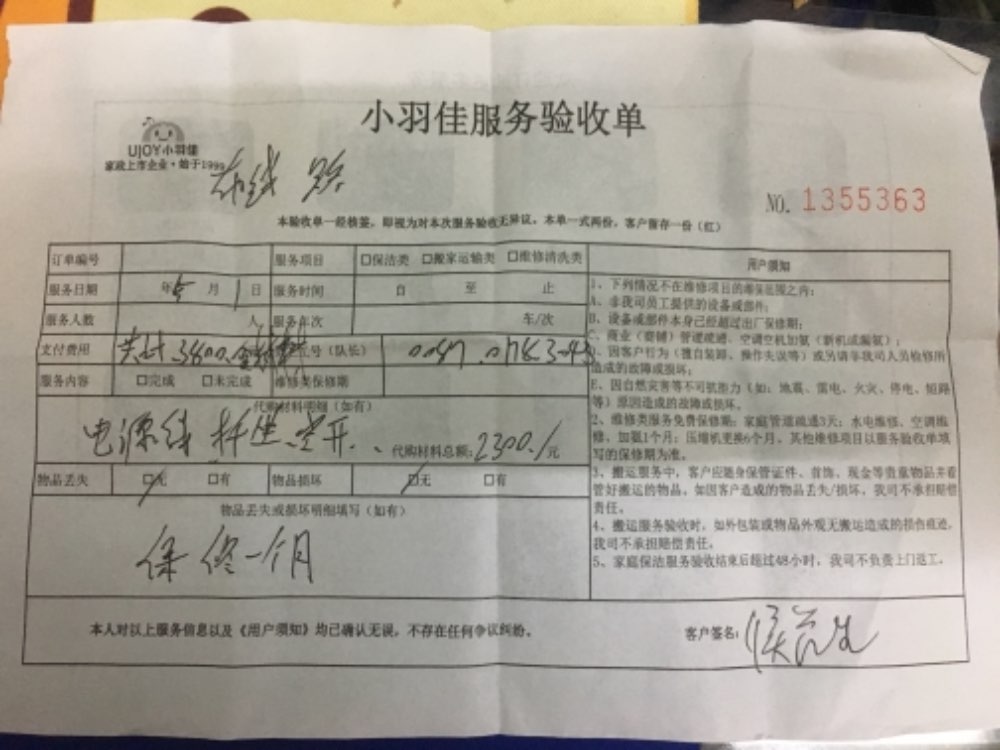 小羽佳服务验收单
UJOY小羽佳
家政上市企业·始于1999
NO. 1355363
本验收单一经核签,即视为对本次服务验收无异议。本单一式两份,客户留存一份(红)
订单编号 服务项目 □保洁类 □搬家运输类 □维修清洗类
服务日期 年5月1日 服务时间 自 至 止
服务人数 人 服务车次 车/次
支付费用 共计3800. 号(队长)
服务内容 □完成 □未完成 维修类保修期
代购材料明细(如有)
电源线 空开. 代购材料总额:2300./元
物品丢失 □无 □有 物品损坏 □无 □有
物品丢失或损坏明细填写(如有)
保修一个月
用户须知
1、下列情况不在维修项目的维保范围之内:
A、非我司员工提供的设备或部件;
B、设备或部件本身已经超过出厂保修期;
C、商业(商铺)管道疏通、空调空机加氨(新机或漏氨);
、因客户行为(擅自装卸、操作失误等)或另请非我司人员检修所
造成的故障或损坏;
E、因自然灾害等不可抗拒力(如:地震、雷电、火灾、停电、短路
等)原因造成的故障或损坏。
2、维修类服务免费保修期:家庭管道疏通3天;水电维修、空调维
修、加氨1个月;压缩机更换6个月。其他维修项目以服务验收单填
写的保修期为准。
3、搬运服务中,客户应随身保管证件、首饰、现金等贵重物品并看
管好搬运的物品。如因客户造成的物品丢失/损坏,我司不承担赔偿
责任。
4、搬运服务验收时,如外包装或物品外观无搬运造成的损伤痕迹,
我司不承担赔偿责任。
5、家庭保洁服务验收结束后超过48小时,我司不负责上门返工。
本人对以上服务信息以及《用户须知》均已确认无误,不存在任何争议纠纷。
客户签名: